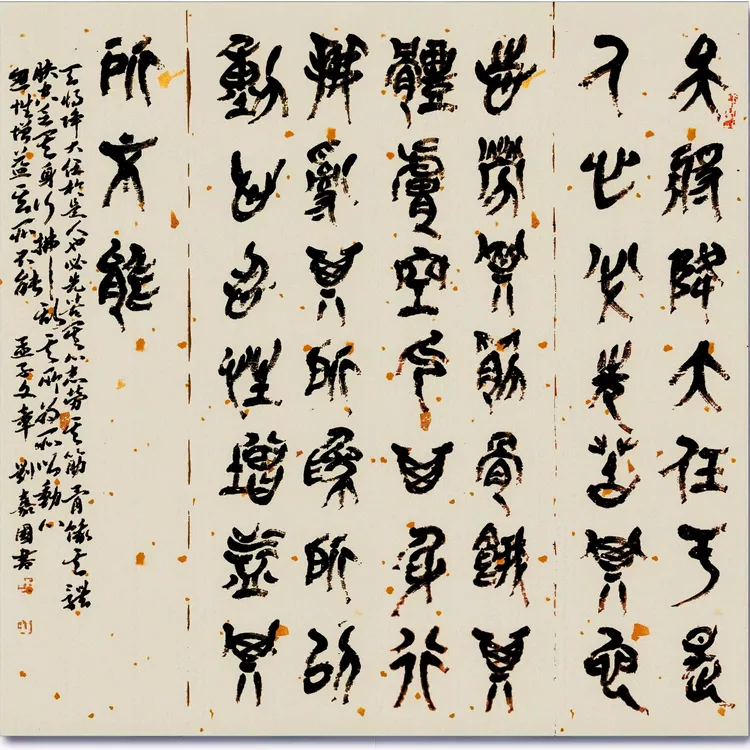 天將降大任于是
人也必先苦其心
志勞其筋骨餓其
體膚空乏其身行
拂亂其所為所以
動心忍性增益其
所不能
天將降大任於是人也必先苦其心志勞其筋骨餓其體
膚空乏其身行拂亂其所為所以動心
忍性增益其所不能 孟子文章 劉嘉國書